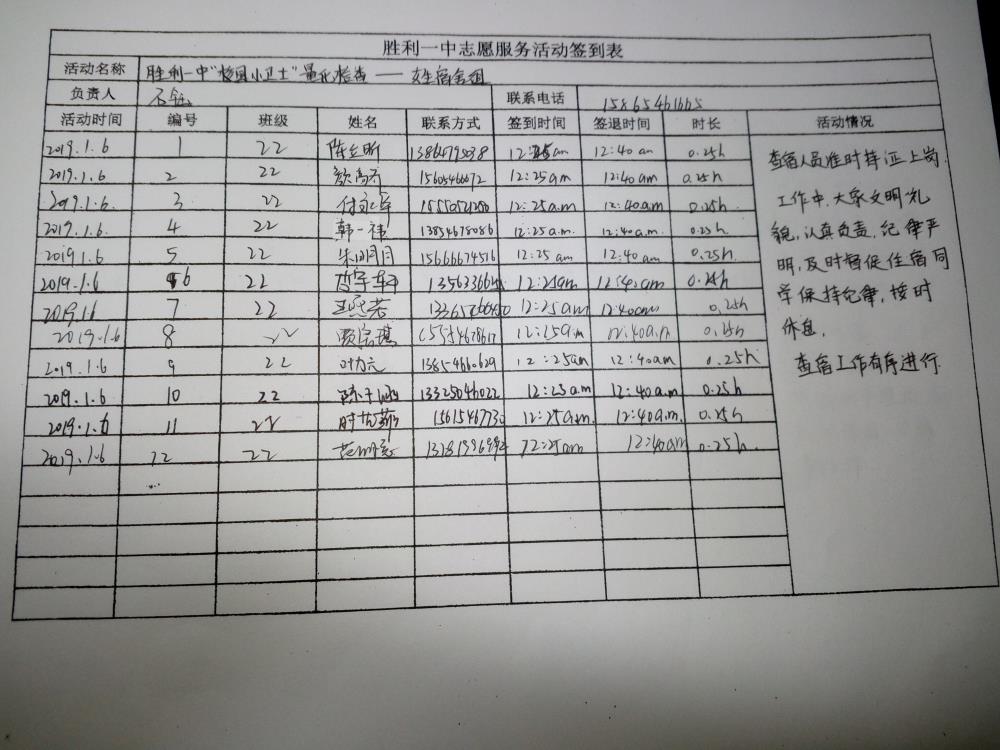 胜利一中志愿服务活动签到表
活动名称 胜利一中"校园小卫士"量化检查——女生宿舍组
负责人 联系电话 15865461665
活动时间 编号 班级 姓名 联系方式 签到时间 签退时间 时长 活动情况
2019.1.6 1 22 13864795038 12:25am 12:40am 0.25h
2019.1.6 2 22 15605466072 12:25am 12:40am 0.25h
2019.1.6. 3 22 12:25a.m 12:40am 0.25h
2019.1.6. 4 22 韩一祎 13854678086 12:25a.m. 12:40a.m. 0.25h
2019.1.6 5 22 朱明月 15666674516 12:25am 12:40am 0.25h.
2019.1.6 6 22 12:25am 12:40am 0.25h
2019.1.6 7 22 12:25am 12:40am 0.25h
2019.1.6 8 22 12:25a.m 12:40a.m 0.25h
2019.1.6 9 22 13854660629 12:25am 12:40am 0.25h
2019.1.6 10 22 13325046022 12:25a.m 12:40a.m. 0.25h
2019.1.6 11 22 1561546773 12:25a.m. 12:40a.m. 0.25h
2019.1.6 12 22 12:25am 12:40am 0.25h
...
查宿人员准时持证上岗.
工作中,大家文明礼
貌,认真负责,纪律严
明,及时督促住宿同
学保持纪律,按时
休息.
查宿工作有序进行.